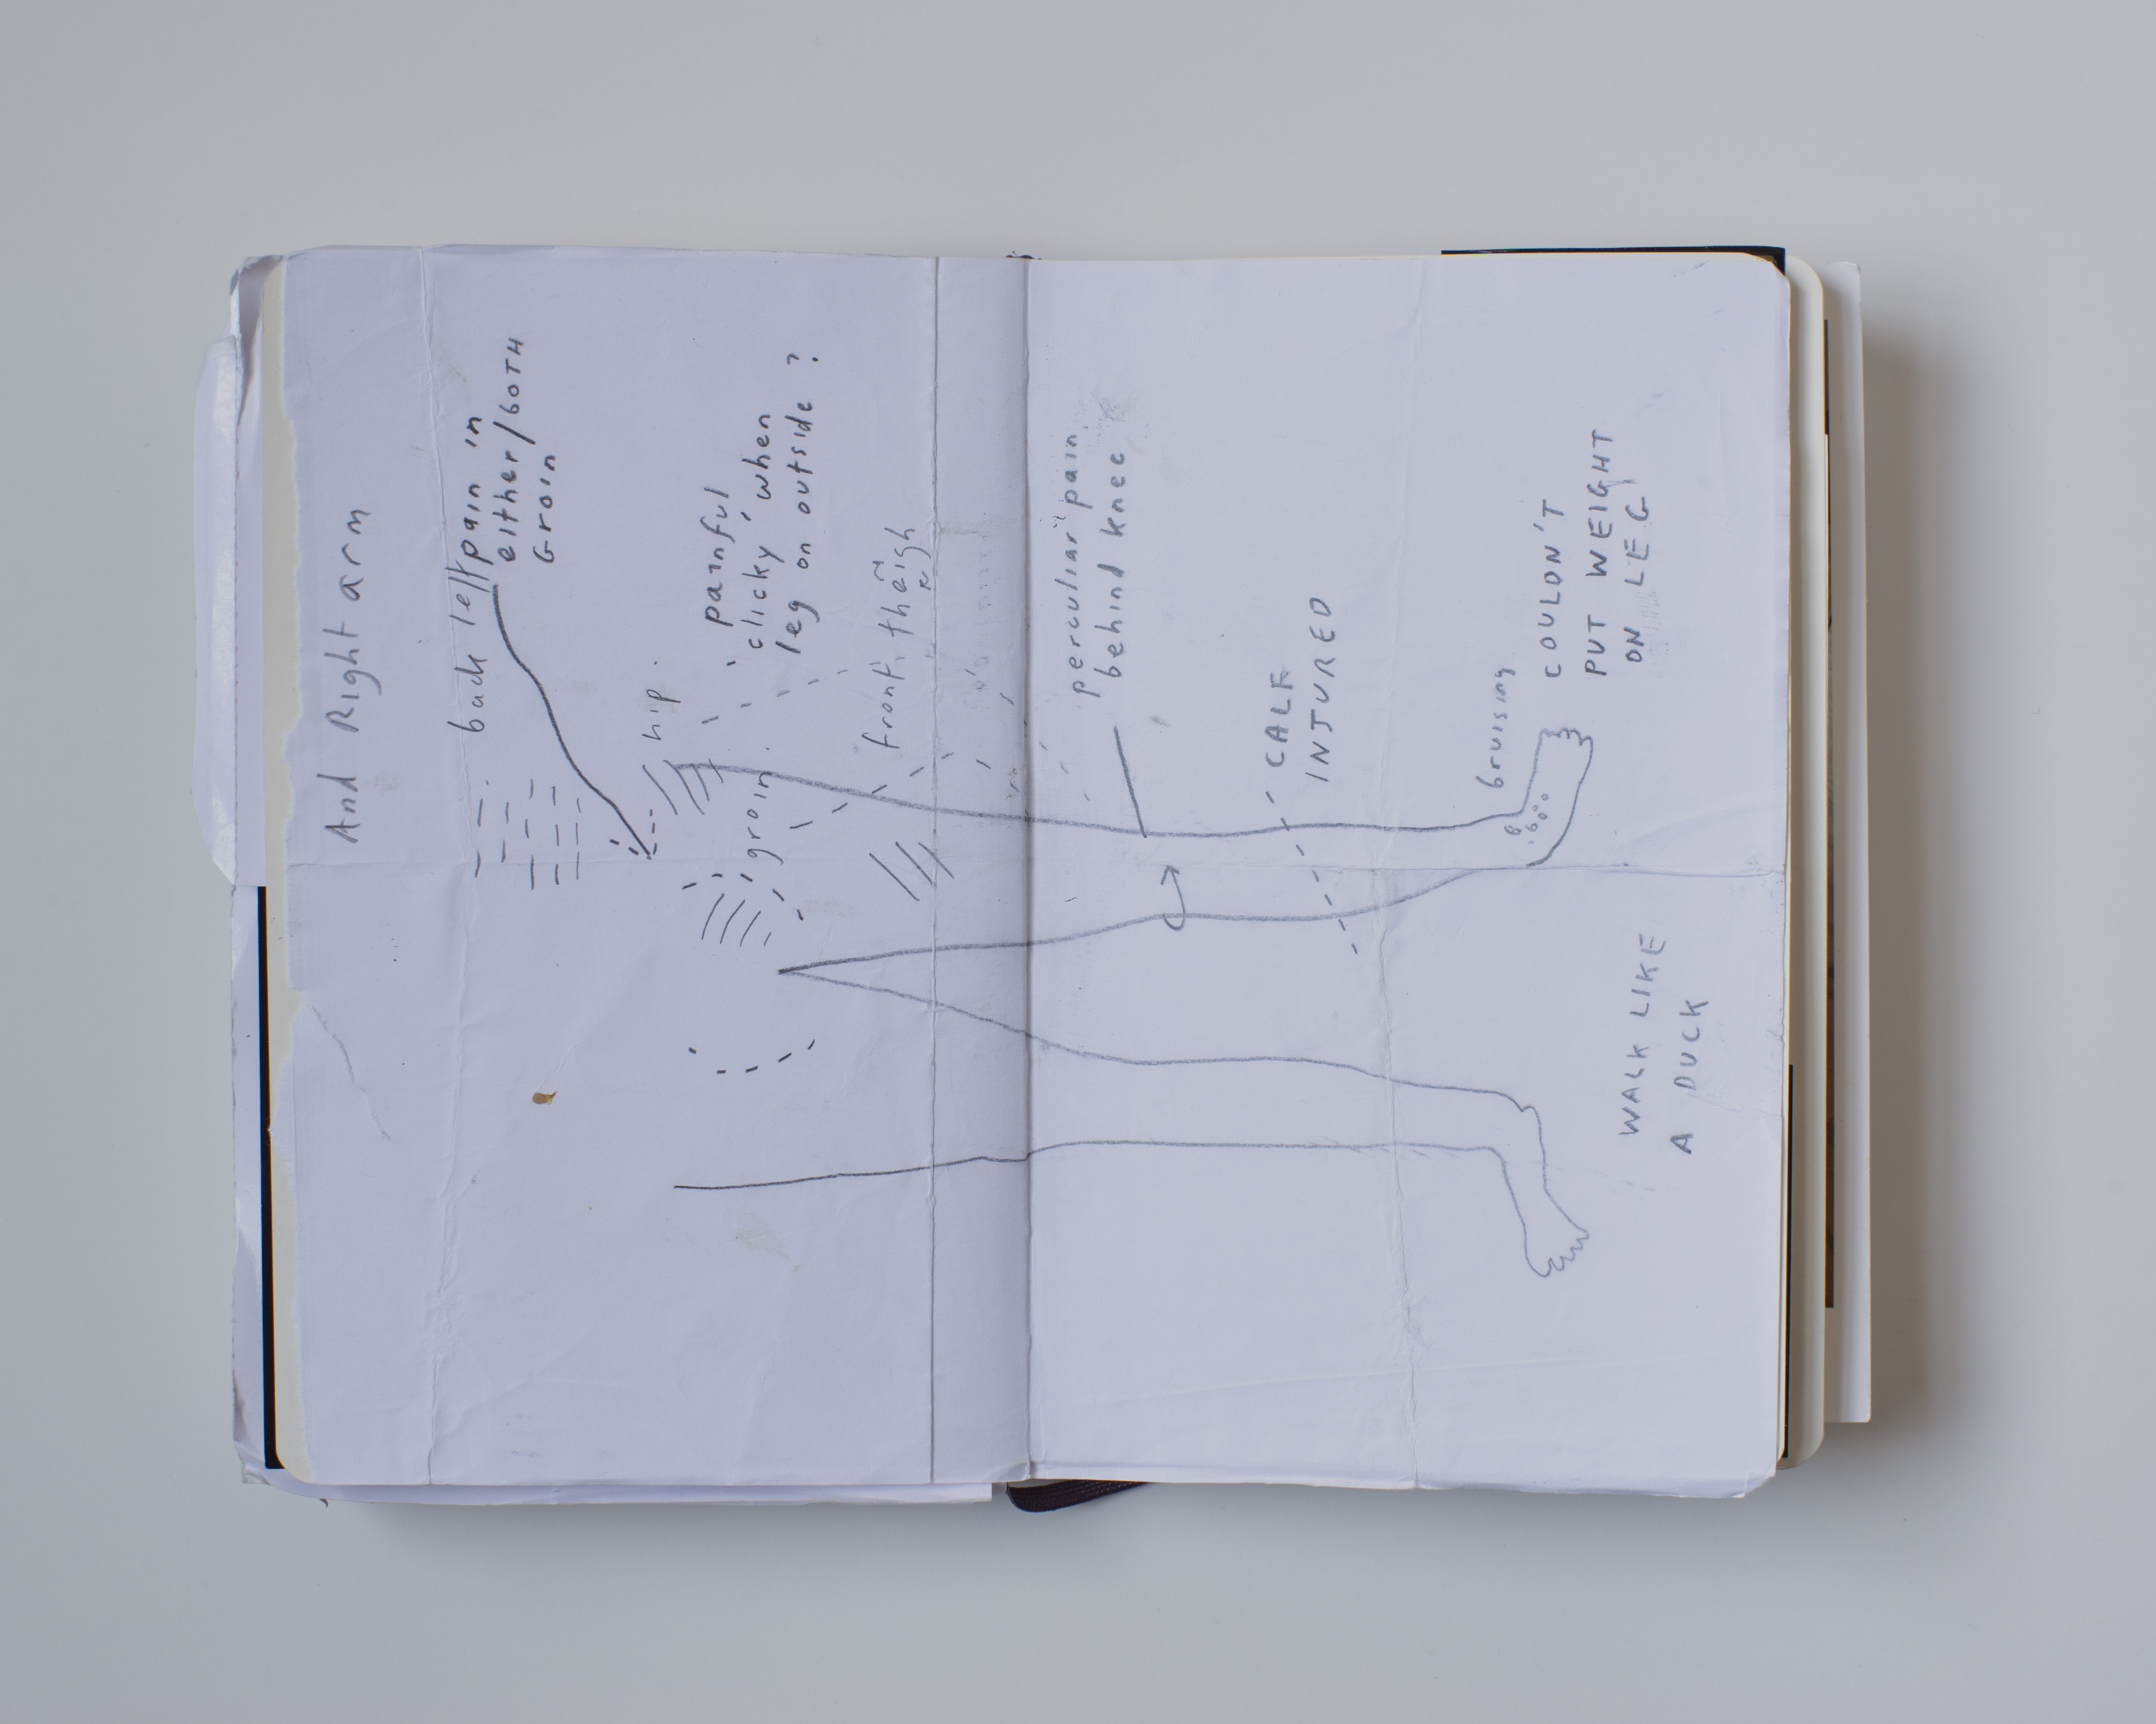 And Right arm
back left
pain in
either/BOTH
Groin
hip
painful
'clicky' when
leg on outside ?
groin
front theigh
"perculiar" pain
behind knee
CALF
INJURED
bruising
COULDN'T
PUT WEIGHT
ON LEG
WALK LIKE
A DUCK